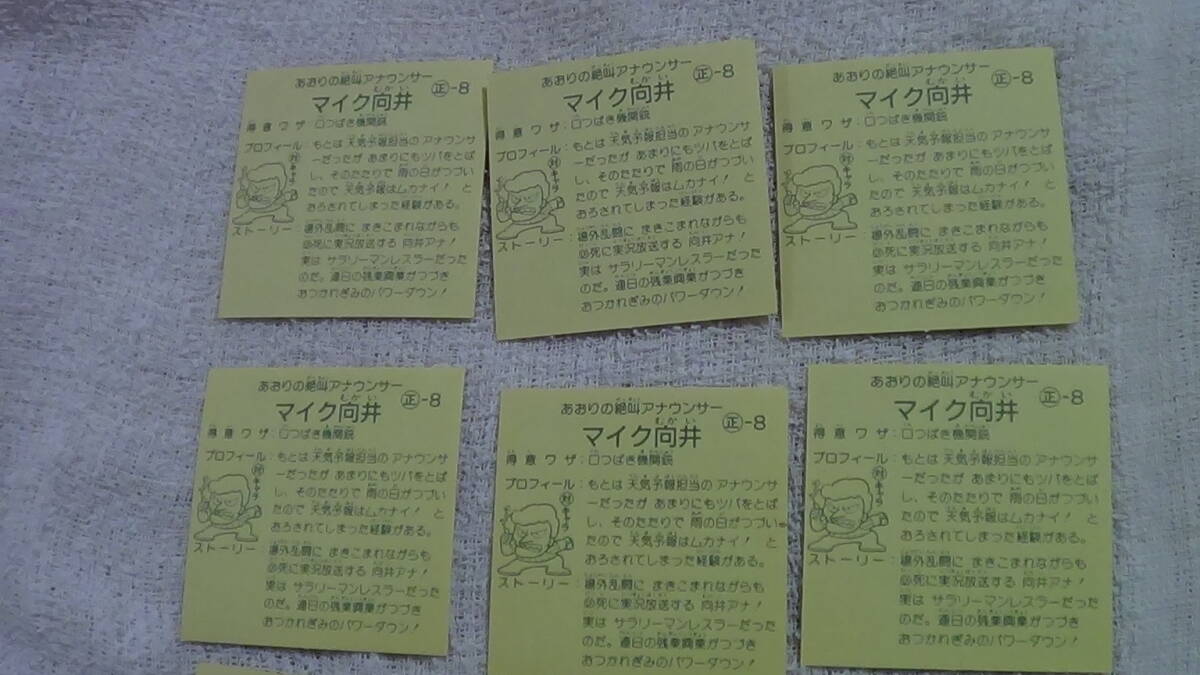 あおりの絶叫アナウンサー
マイク向井 正-8
得意ワザ:口つばき機関銃
プロフィール:もとは 天気予報担当の アナウンサ
ーだったが あまりにもツバをとば
し、そのたたりで 雨の日がつづい
たので 天気予報はムカナイ! と
おろされてしまった経験がある。
対キャラ
ストーリー:場外乱闘に まきこまれながらも
必死に実況放送する 向井アナ!
実は サラリーマンレスラーだった
のだ。連日の残業興業がつづき
おつかれぎみのパワーダウン!
あおりの絶叫アナウンサー
マイク向井 正-8
得意ワザ:口つばき機関銃
プロフィール:もとは 天気予報担当の アナウンサ
ーだったが あまりにもツバをとば
し、そのたたりで 雨の日がつづい
たので 天気予報はムカナイ! と
おろされてしまった経験がある。
対キャラ
ストーリー:場外乱闘に まきこまれながらも
必死に実況放送する 向井アナ!
実は サラリーマンレスラーだった
のだ。連日の残業興業がつづき
おつかれぎみのパワーダウン!
あおりの絶叫アナウンサー
マイク向井 正-8
得意ワザ:口つばき機関銃
プロフィール:もとは 天気予報担当の アナウンサ
ーだったが あまりにもツバをとば
し、そのたたりで 雨の日がつづい
たので 天気予報はムカナイ! と
おろされてしまった経験がある。
対キャラ
ストーリー:場外乱闘に まきこまれながらも
必死に実況放送する 向井アナ!
実は サラリーマンレスラーだった
のだ。連日の残業興業がつづき
おつかれぎみのパワーダウン!
あおりの絶叫アナウンサー
マイク向井 正-8
得意ワザ:口つばき機関銃
プロフィール:もとは 天気予報担当の アナウンサ
ーだったが あまりにもツバをとば
し、そのたたりで 雨の日がつづい
たので 天気予報はムカナイ! と
おろされてしまった経験がある。
対キャラ
ストーリー:場外乱闘に まきこまれながらも
必死に実況放送する 向井アナ!
実は サラリーマンレスラーだった
のだ。連日の残業興業がつづき
おつかれぎみのパワーダウン!
あおりの絶叫アナウンサー
マイク向井 正-8
得意ワザ:口つばき機関銃
プロフィール:もとは 天気予報担当の アナウンサ
ーだったが あまりにもツバをとば
し、そのたたりで 雨の日がつづい
たので 天気予報はムカナイ! と
おろされてしまった経験がある。
対キャラ
ストーリー:場外乱闘に まきこまれながらも
必死に実況放送する 向井アナ!
実は サラリーマンレスラーだった
のだ。連日の残業興業がつづき
おつかれぎみのパワーダウン!
あおりの絶叫アナウンサー
マイク向井 正-8
得意ワザ:口つばき機関銃
プロフィール:もとは 天気予報担当の アナウンサ
ーだったが あまりにもツバをとば
し、そのたたりで 雨の日がつづい
たので 天気予報はムカナイ! と
おろされてしまった経験がある。
対キャラ
ストーリー:場外乱闘に まきこまれながらも
必死に実況放送する 向井アナ!
実は サラリーマンレスラーだった
のだ。連日の残業興業がつづき
おつかれぎみのパワーダウン!